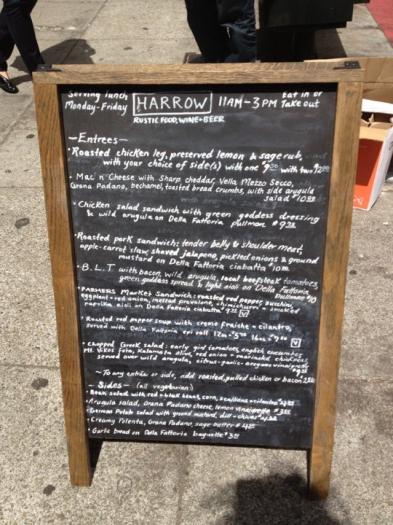 Serving lunch
Monday-Friday
HARROW
RUSTIC FOOD, WINE + BEER
11AM-3PM
Eat in or
Take out
-Entrees-
• Roasted chicken leg, preserved lemon & sage rub,
with your choice of side(s) with one with two
• Mac 'n' Cheese with Sharp cheddar, Vella Mezzo Secco,
Grana Padano, bechamel, toasted bread crumbs, with side arugula
salad
• Chicken salad sandwich with green goddess dressing
& wild arugula on Della Fattoria pullman
• Roasted pork sandwich: tender belly & shoulder meat,
apple-carrot slaw, shaved jalapeno, pickled onions & ground
mustard on Della Fattoria ciabatta
• B.L.T with bacon, wild arugula, local beefsteak tomatoes,
green goddess spread & light aioli on Della Fattoria
Pullman
• FARMERS Market Sandwich: roasted red pepper, zucchini,
eggplant, red onion, provolone, chimichurri + smoked
paprika aioli on Della Fattoria ciabatta V
• Roasted red pepper soup with creme fraiche + cilantro,
served with Della Fattoria epi roll 12oz 16oz V
• Chopped Greek Salad: early girl tomatoes, english cucumber,
feta, Kalamata olive, red onion + marinated chickpeas,
served over wild arugula, citrus-garlic-oregano vinaigrette
-To any entree or side, add roasted, pulled chicken or bacon
-Sides- (all vegetarian!)
• Bean salad with red + black beans, corn,
• Arugula salad, Grana Padano cheese, lemon vinaigrette
• German Potato salad with ground mustard, dill + chives
• Creamy Polenta, Grana Padano, sage butter
• Garlic bread on Della Fattoria baguette